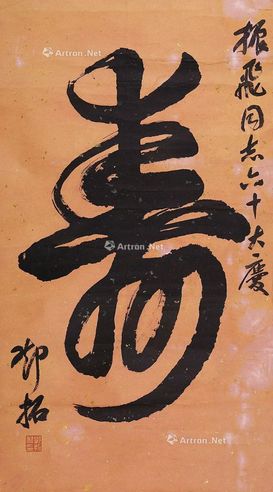 振飞同志六十大庆
寿
邓拓
Artron.Net
Artron.Net
Artron.Net